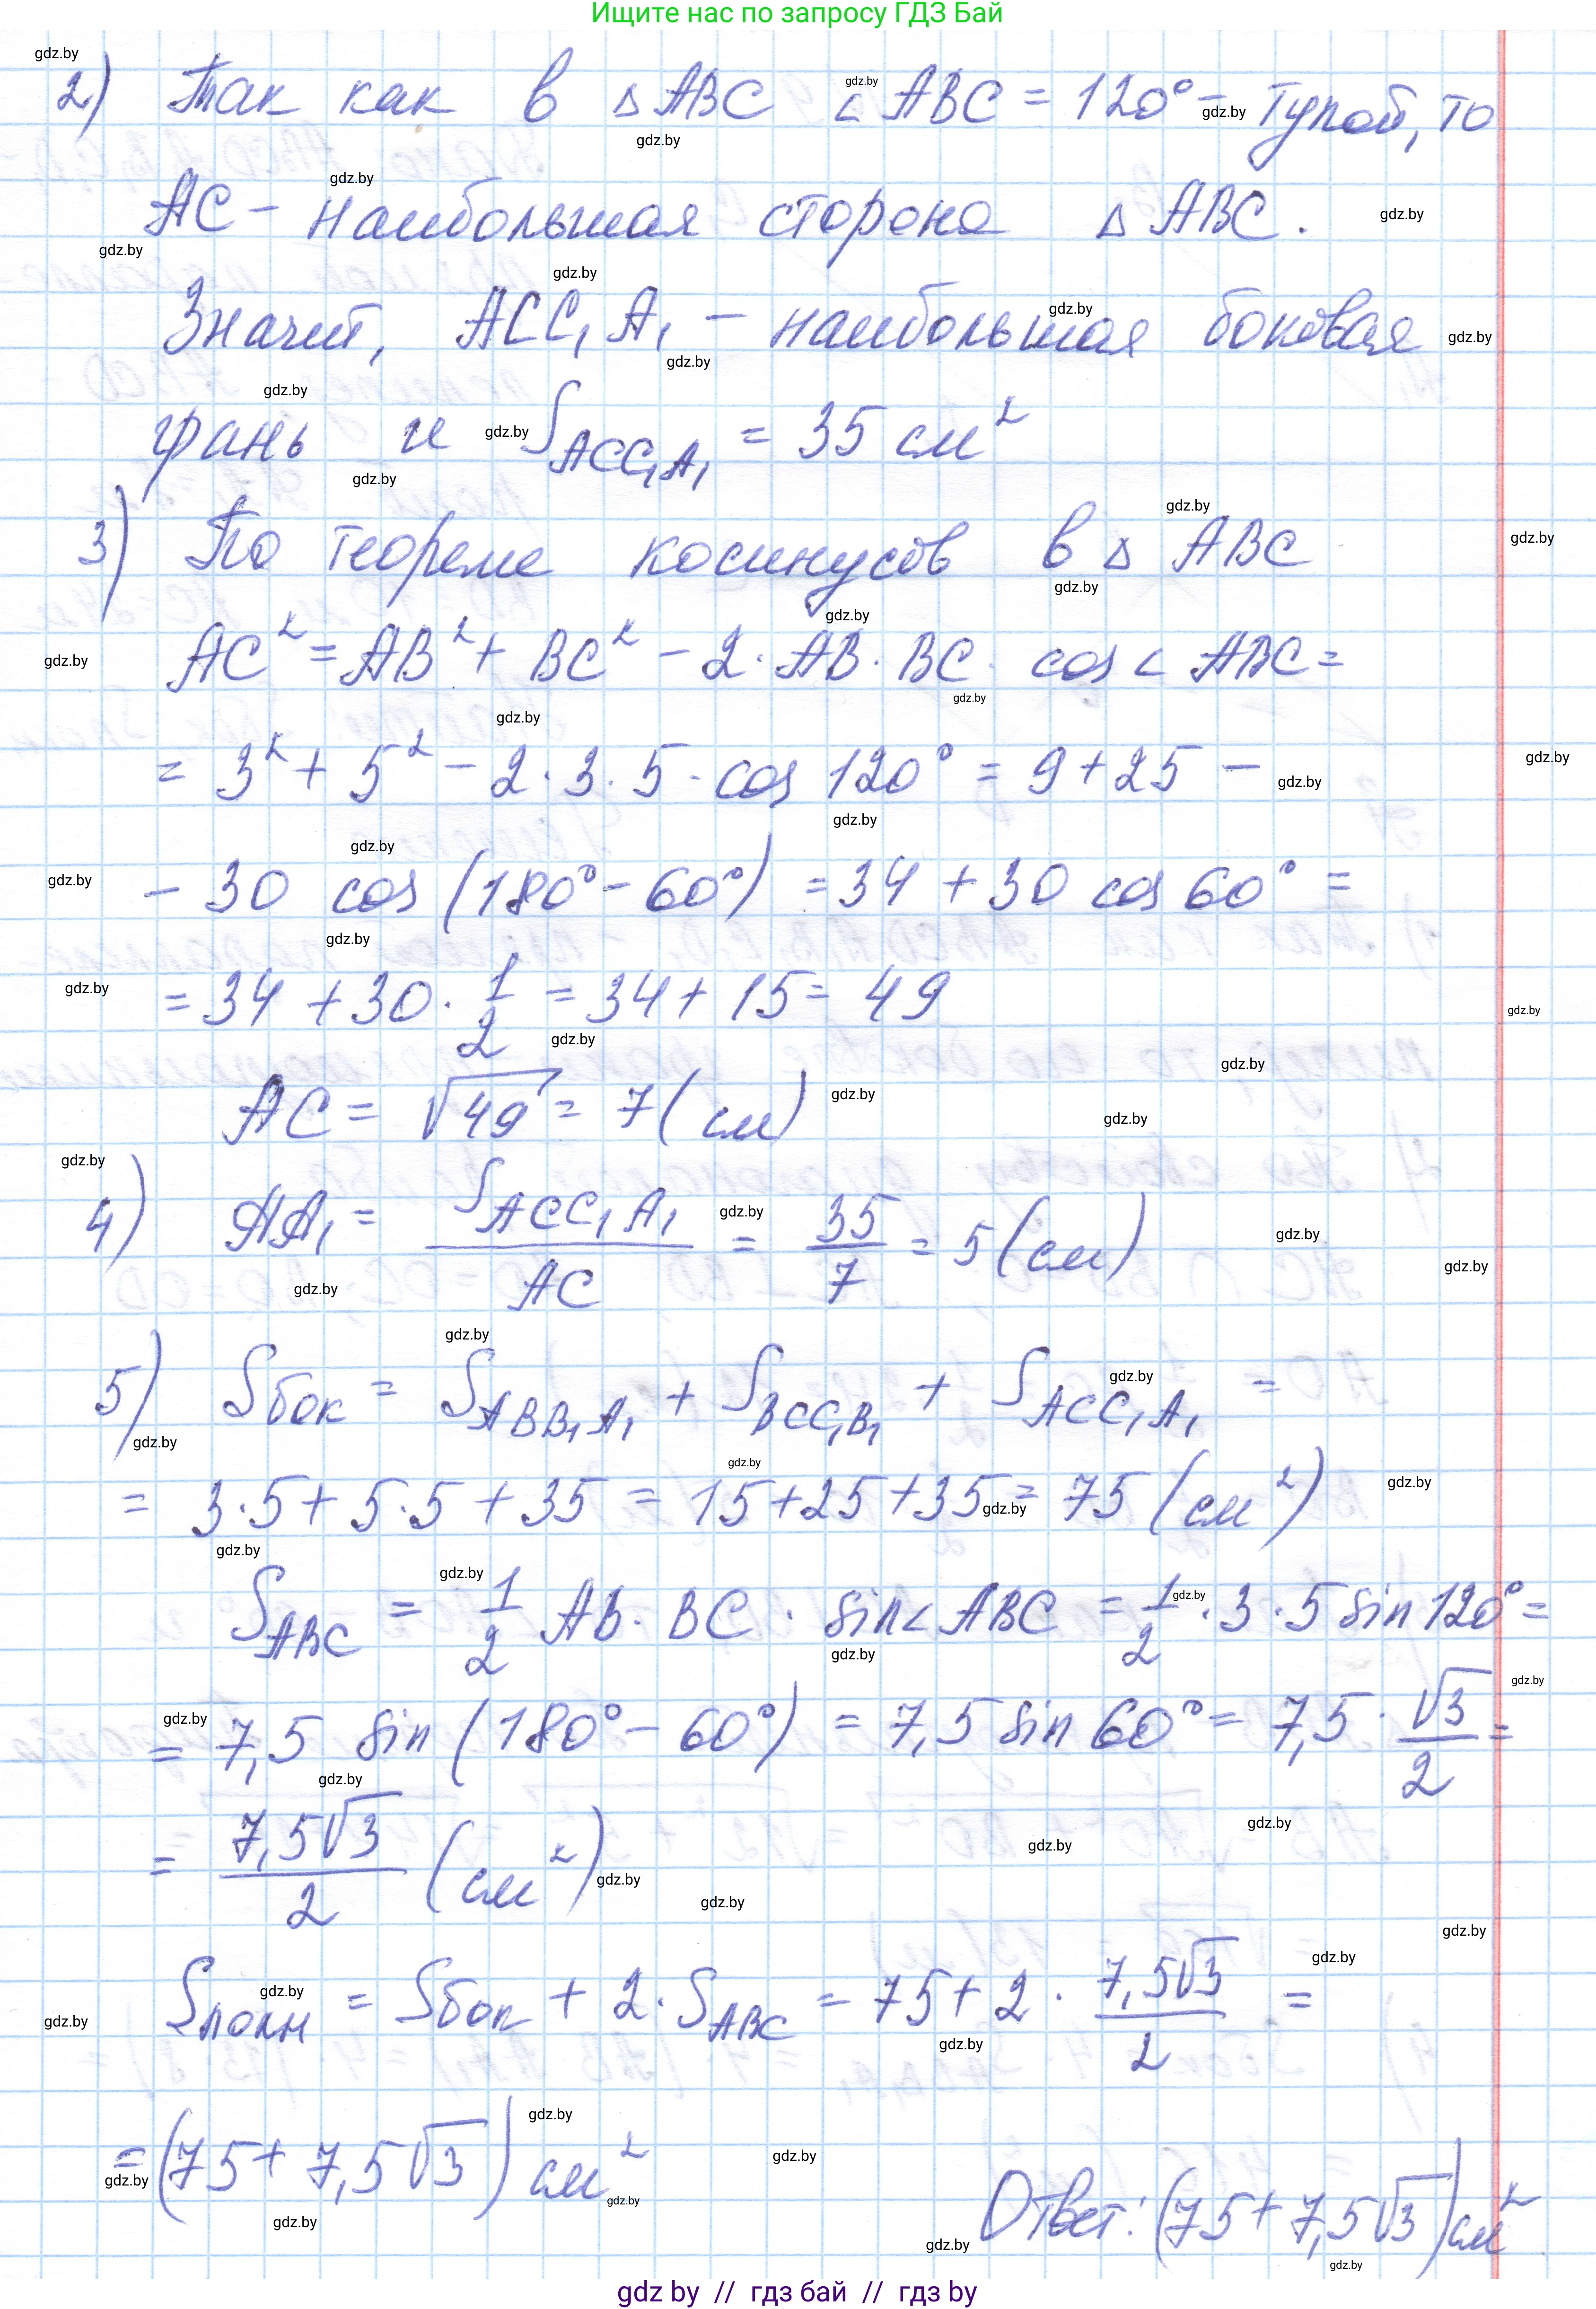 Ищите нас по запросу ГДЗ Бай
2) Так как в △ABC ∠ABC = 120° - тупой, то
AC - наибольшая сторона △ABC.
Значит, ACC₁A₁ - наибольшая боковая
грань и S_ACC₁A₁ = 35 см²
3) По теореме косинусов в △ABC
AC² = AB² + BC² - 2·AB·BC·cos∠ABC =
= 3² + 5² - 2·3·5·cos 120° = 9 + 25 -
- 30 cos (180° - 60°) = 34 + 30 cos 60° =
= 34 + 30 · 1/2 = 34 + 15 = 49
AC = √49 = 7 (см)
4) AA₁ = S_ACC₁A₁ / AC = 35/7 = 5 (см)
5) Sбок = S_ABB₁A₁ + S_BCC₁B₁ + S_ACC₁A₁ =
= 3·5 + 5·5 + 35 = 15 + 25 + 35 = 75 (см²)
S_ABC = 1/2 AB·BC·sin∠ABC = 1/2·3·5 sin 120° =
= 7,5 sin (180° - 60°) = 7,5 sin 60° = 7,5 · √3/2 =
= 7,5√3/2 (см²)
Sполн = Sбок + 2·S_ABC = 75 + 2 · 7,5√3/2 =
= (75 + 7,5√3) см²
Ответ: (75 + 7,5√3) см²
gdz by // гдз бай // гдз by